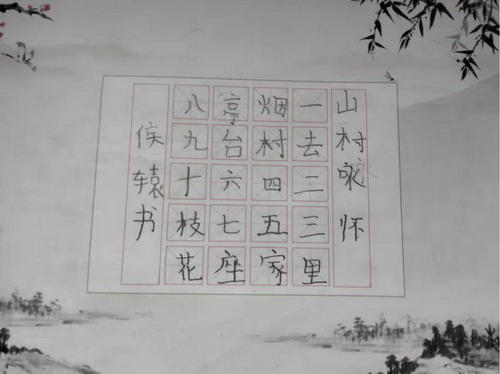 山村咏怀
一去二三里
烟村四五家
亭台六七座
八九十枝花
侯辕书